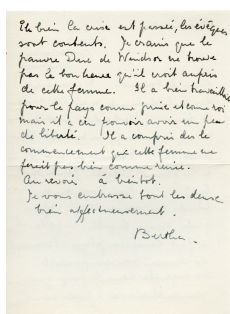 Eh bien la crise est passée, les évêques
sont contents. Je crains que le
pauvre Duc de Windsor ne trouve
pas le bonheur qu'il croit auprès
de cette femme. Il a bien travaillé
pour le pays comme prince et comme roi
mais il a cru pouvoir avoir un peu
de liberté. Il a compris dès le
commencement que cette femme ne
ferait pas bien comme reine.
Au revoir à bientôt.
Je vous embrasse tout les deux
bien affectueusement.
Berthe.